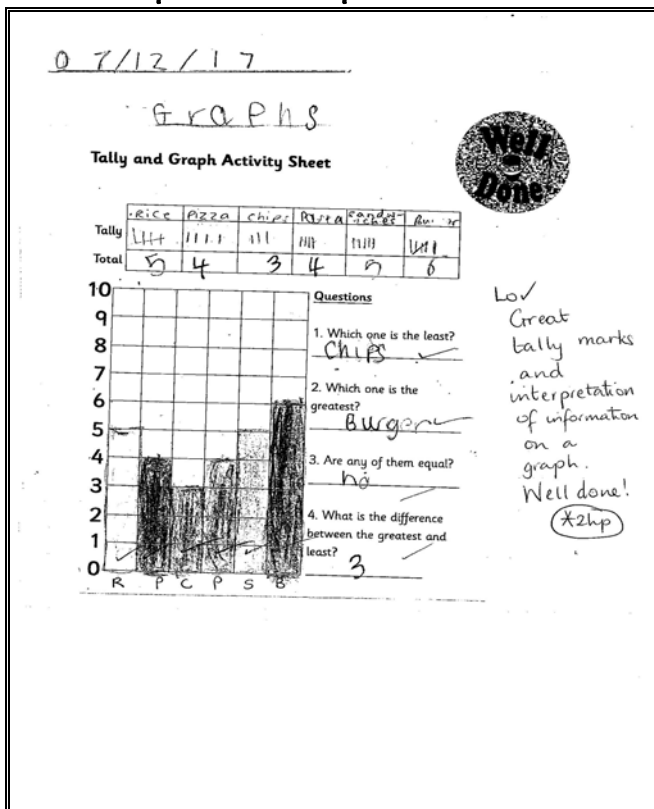 07/12/17
Graphs
Well Done
Tally and Graph Activity Sheet
Rice Pizza chips Pasta Sandwiches
Tally
Total 5 4 3 4 5 6
10
9
8
7
6
5
4
3
2
1
0
R P C P S B
Questions
1. Which one is the least?
Chips
2. Which one is the
greatest?
Burger
3. Are any of them equal?
no
4. What is the difference
between the greatest and
least?
3
LO✓
Great
tally marks
and
interpretation
of information
on a
graph.
Well done!
*2hp